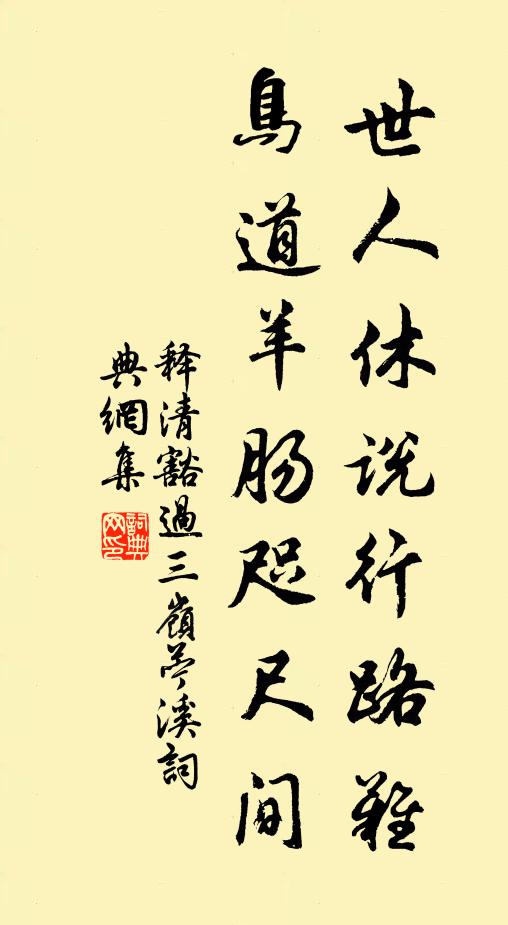 世人休说行路難
鳥道羊肠咫尺间
释清豁過三嶺苧溪詞
典網集
詞典
网印